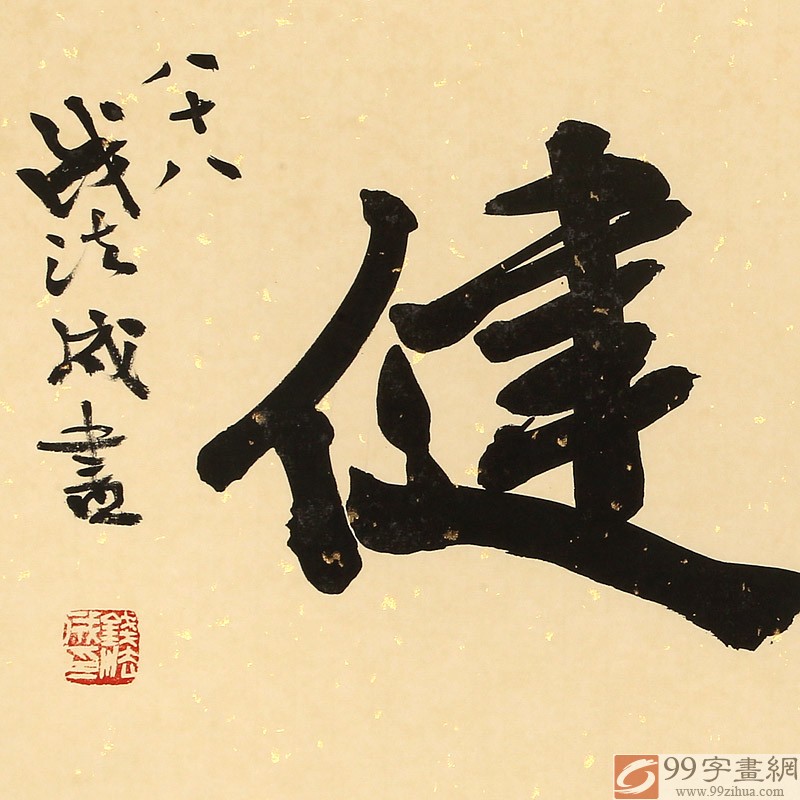 健
八十八
钱法成書
錢法
成印
99字畫網
www.99zihua.com